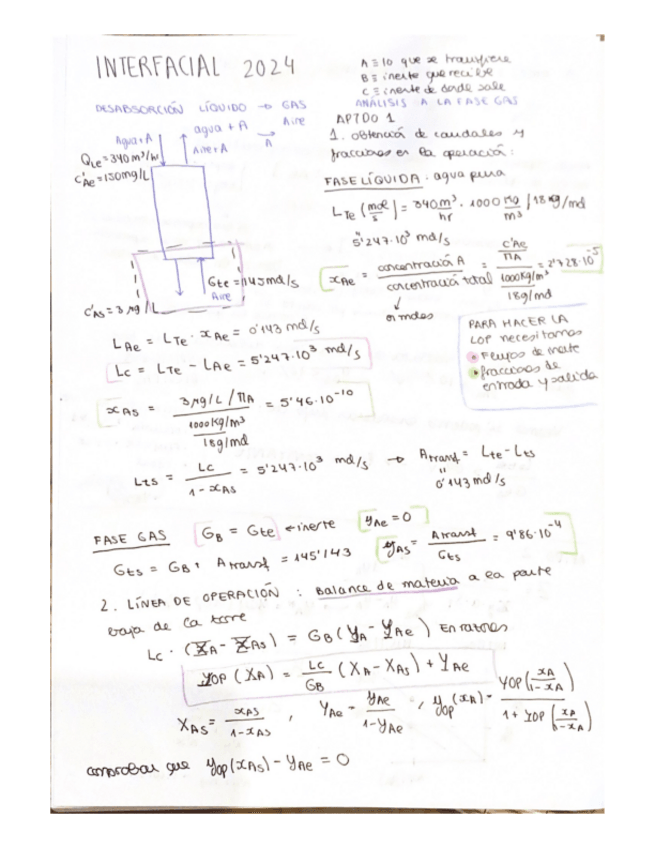 INTERFACIAL 2024
A ≡ lo que se transfiere
B ≡ inerte que recibe
C ≡ inerte de donde sale
ANÁLISIS A LA FASE GAS
DESABSORCIÓN LÍQUIDO → GAS
Agua+A
agua + A
Aire+A
Aire
A
Q_Le = 340 m³/hr
C'_Ae = 150 mg/L
G_te = 145 mol/s
Aire
C'_AS = 3 μg/L
APTDO 1
1. obtención de caudales y
fracciones en la operación:
FASE LÍQUIDA: agua pura
L_Te (mol/s) = 340 m³/hr · 1000 kg/m³ / 18 kg/mol
5'247·10³ mol/s
x_Ae = concentración A / concentración total = (C'_Ae / ΠA) / (1000 kg/m³ / 18 g/mol) = 2'728·10⁻⁵
↓
en moles
L_Ae = L_Te · x_Ae = 0'143 mol/s
L_C = L_Te - L_Ae = 5'247·10³ mol/s
PARA HACER LA
LOP necesitamos
• Flujos de inerte
• fracciones de
entrada y salida
x_AS = (3 μg/L / ΠA) / (1000 kg/m³ / 18 g/mol) = 5'46·10⁻¹⁰
L_ts = L_C / (1 - x_AS) = 5'247·10³ mol/s → A_transf = L_te - L_ts
"
0'143 mol/s
FASE GAS G_B = G_te ← inerte y_Ae = 0
G_ts = G_B + A_transf = 145'143 y_AS = A_transf / G_ts = 9'86·10⁻⁴
2. LÍNEA DE OPERACIÓN : Balance de materia a la parte
baja de la torre
L_C · (X_A - X_AS) = G_B (Y_A - Y_Ae) En ratios
Y_OP (X_A) = L_C / G_B (X_A - X_AS) + Y_Ae
X_AS = x_AS / (1 - x_AS) , Y_Ae = y_Ae / (1 - y_Ae) , y_op (x_A) = Y_OP (x_A / (1 - x_A)) / (1 + Y_OP (x_A / (1 - x_A)))
comprobar que y_op (x_AS) - y_Ae = 0